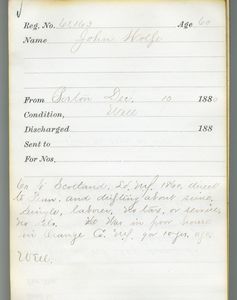 Reg. No. Age 60
Name John Wolfe
From Boston Dec. 10 1880
Condition, Well
Discharged 188
Sent to
For Nos.
Scotland, Ld. N.Y. 1860. direct
and drifting about since.
Single, laborer, no tax, or service,
no He was in poor house
in Orange Co. N.Y. for 10 yrs. ago.
Well.